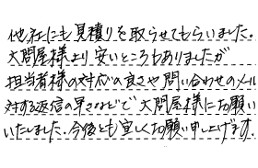 他社にも見積りを取らせてもらいました。
大問屋様より安いところもありましたが
担当者様の対応の良さや問い合わせのメール
対する返信の早さなどで大問屋様にお願い
いたしました。今後とも宜しくお願い申し上げます。